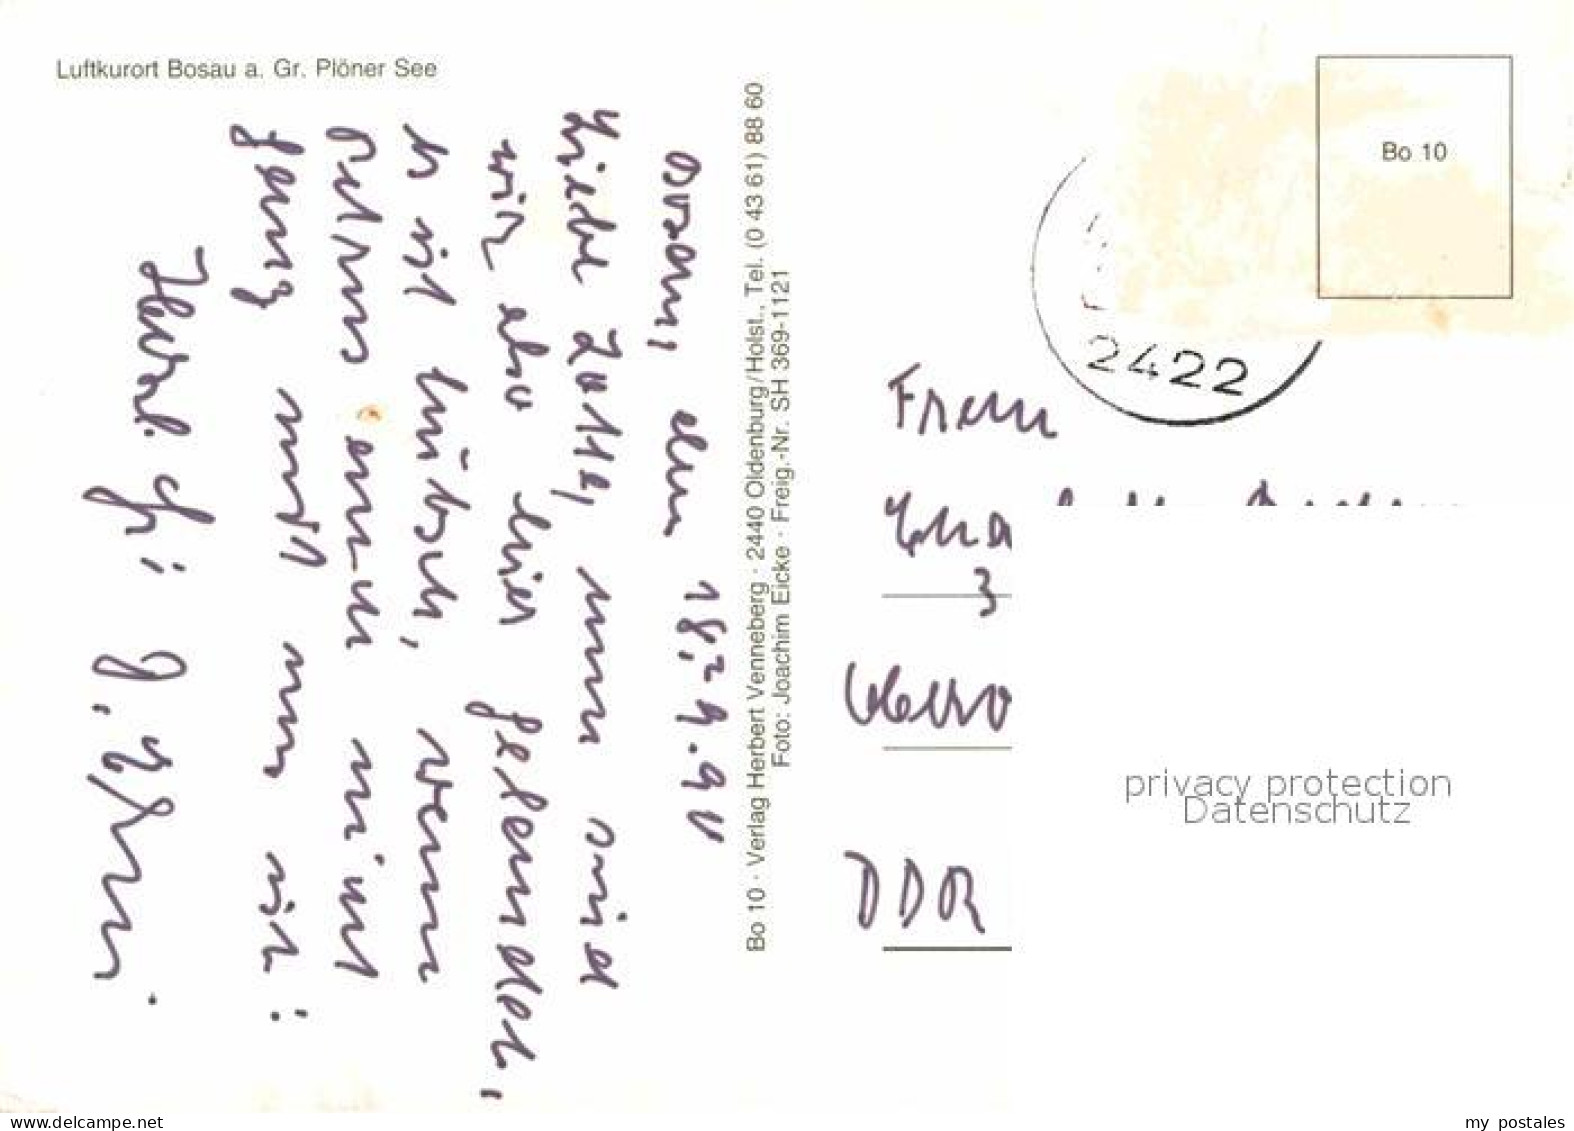 Luftkurort Bosau a. Gr. Plöner See
Bosau, den 18. 9. 90
Liebe Lotte, nun sind
wir also hier gelandet,
es ist hübsch, wenn
Petrus einen nicht
ganz naß nur
Herzl.
Bo 10 · Verlag Herbert Venneberg · 2440 Oldenburg/Holst., Tel. (0 43 61) 88 60
Foto: Joachim Eicke · Freig.-Nr. SH 369-1121
Bo 10
2422
Frau
DDR
privacy protection
Datenschutz
www.delcampe.net
my postales